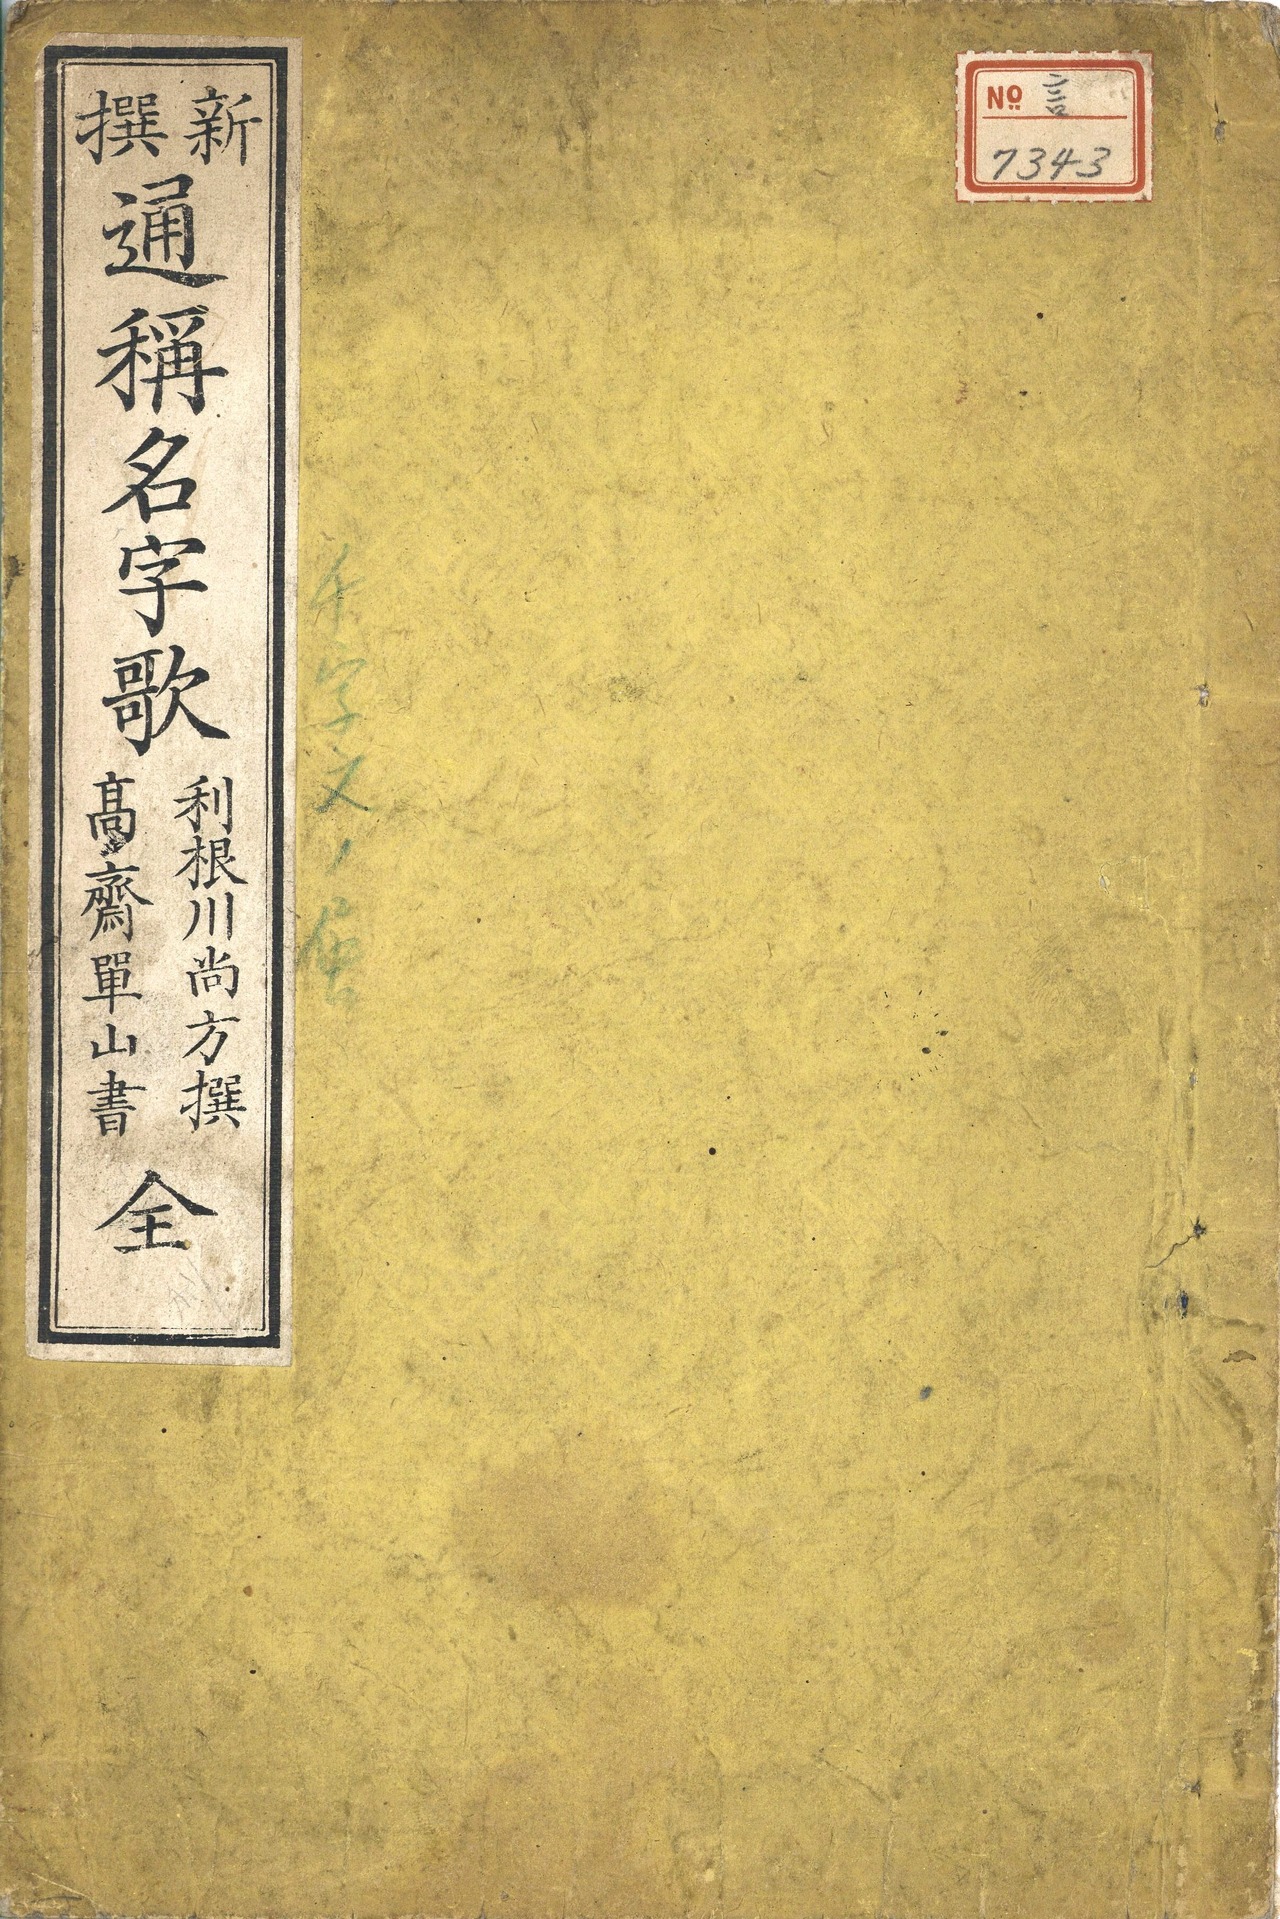 新撰
通稱名字歌
利根川尚方撰
高齋單山書
全
No 言
7343
千字文ノ屬